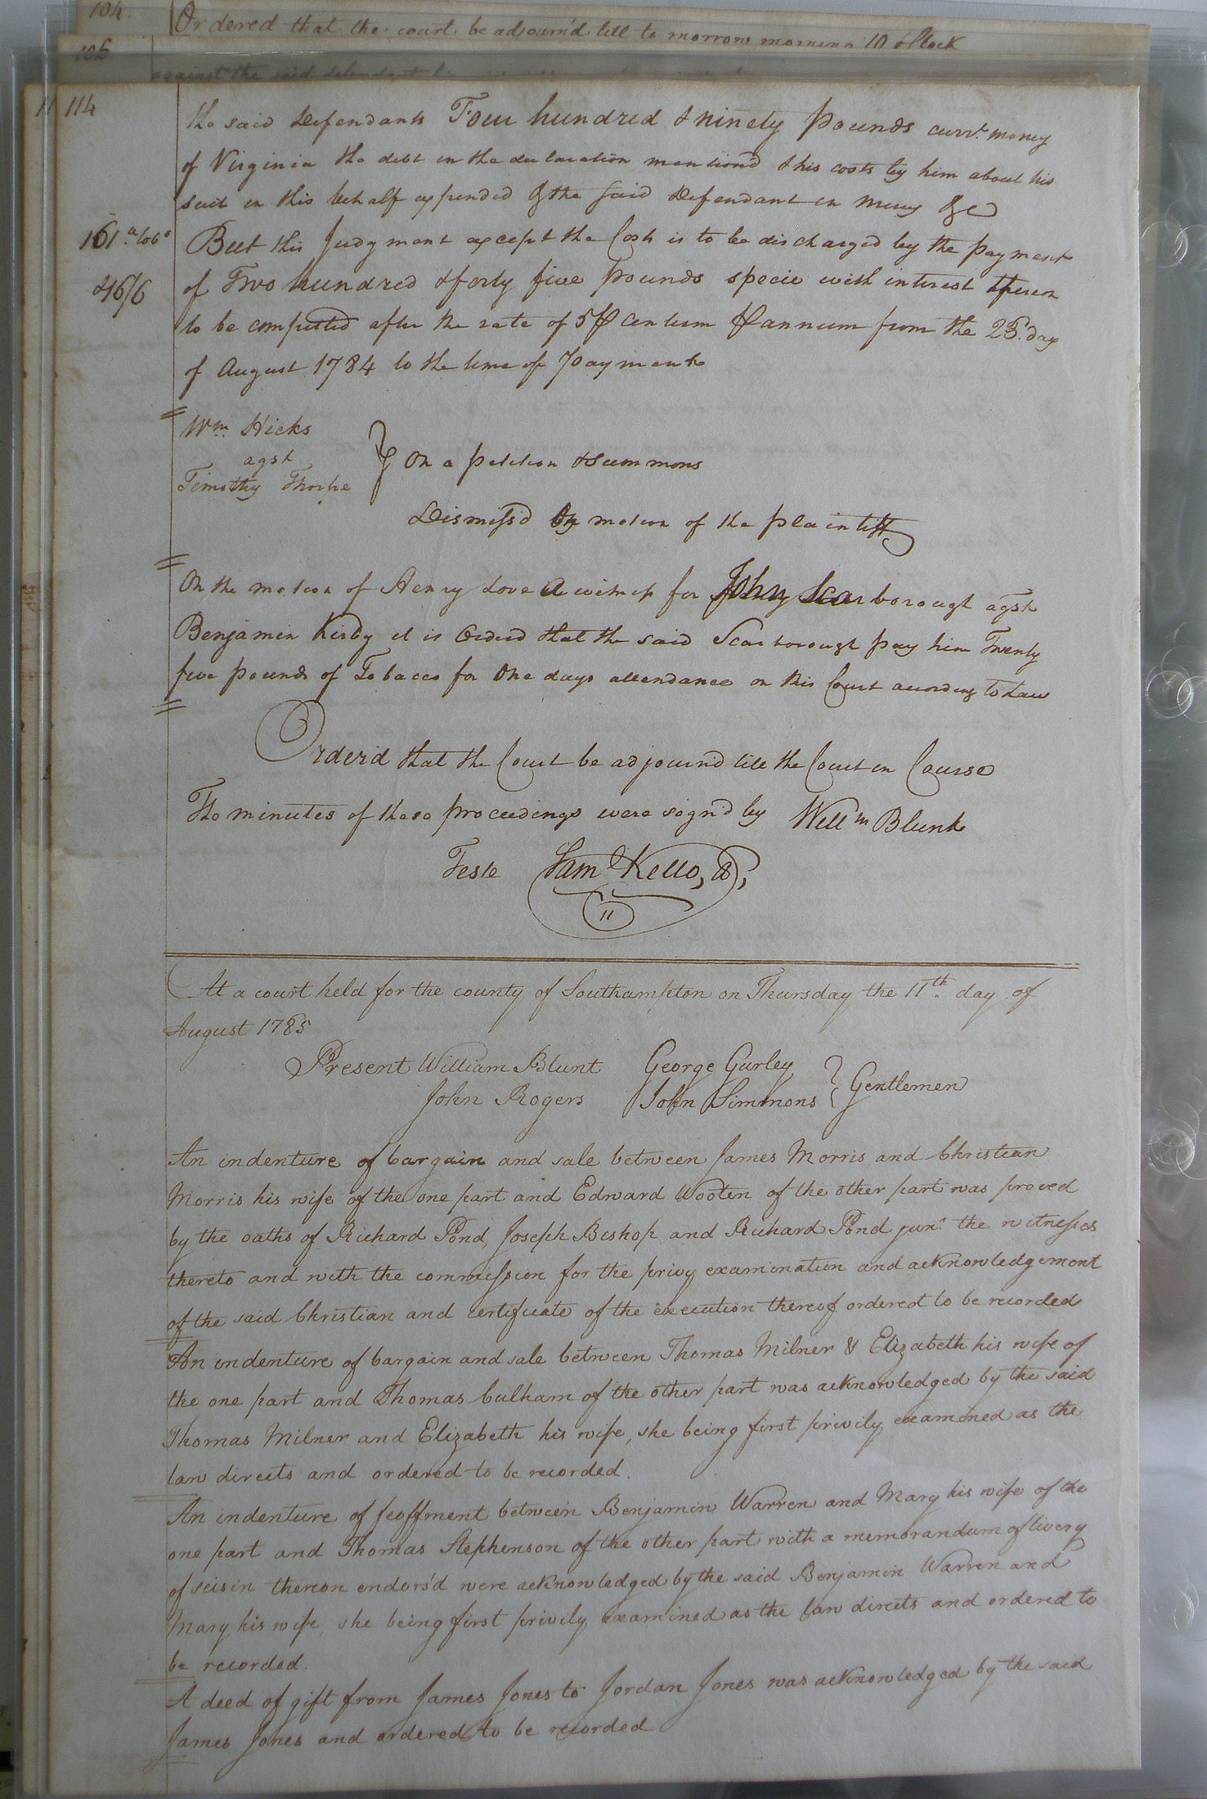 104.
Ordered that the court be adjourn'd till to morrow morning 10 oClock
106
against the said defendant
11
114
the said Defendants Four hundred & ninety Pounds currt. money
of Virginia the debt in the declaration mention'd & his costs by him about his
suit in this behalf expended & the said Defendant in mercy &c
161
But this Judgment except the Costs is to be discharged by the payment
46/6
of Two hundred & forty five Pounds specie with interest thereon
to be computed after the rate of 5 ⅌ Centum ⅌ annum from the 23d. day
of August 1784 to the time of Payment
Wm. Hicks
agst
Timothy Thorpe
On a petition & Summons
Dismiss'd by motion of the plaintiff
On the motion of Henry Love a witness for John Scarborough agst
Benjamin Kirby it is Orderd that the said Scarborough pay him Twenty
five pounds of Tobacco for One days attendance on this Court according to Law
Order'd that the Court be adjourn'd till the Court in Course
The minutes of these proceedings were sign'd by Willm Blunt
Teste Saml Kello,
At a court held for the county of Southampton on Thursday the 11th. day of
August 1785
Present William Blunt George Gurley
John Rogers John Simmons
Gentlemen
An indenture of bargain and sale between James Morris and Christian
Morris his wife of the one part and Edward Wooten of the other part was proved
by the oaths of Richard Pond, Joseph Bishop and Richard Pond junr. the witnesses
thereto and with the commission for the privy examination and acknowledgement
of the said Christian and certificate of the execution thereof ordered to be recorded
An indenture of bargain and sale between Thomas Milner & Elizabeth his wife of
the one part and Thomas Culham of the other part was acknowledged by the said
Thomas Milner and Elizabeth his wife, she being first privily examined as the
law directs and ordered to be recorded.
An indenture of feoffment between Benjamin Warren and Mary his wife of the
one part and Thomas Stephenson of the other part with a memorandum of livery
of seisin thereon endors'd were acknowledged by the said Benjamin Warren and
Mary his wife, she being first privily examined as the law directs and ordered to
be recorded.
A deed of gift from James Jones to Jordan Jones was acknowledged by the said
James Jones and ordered to be recorded